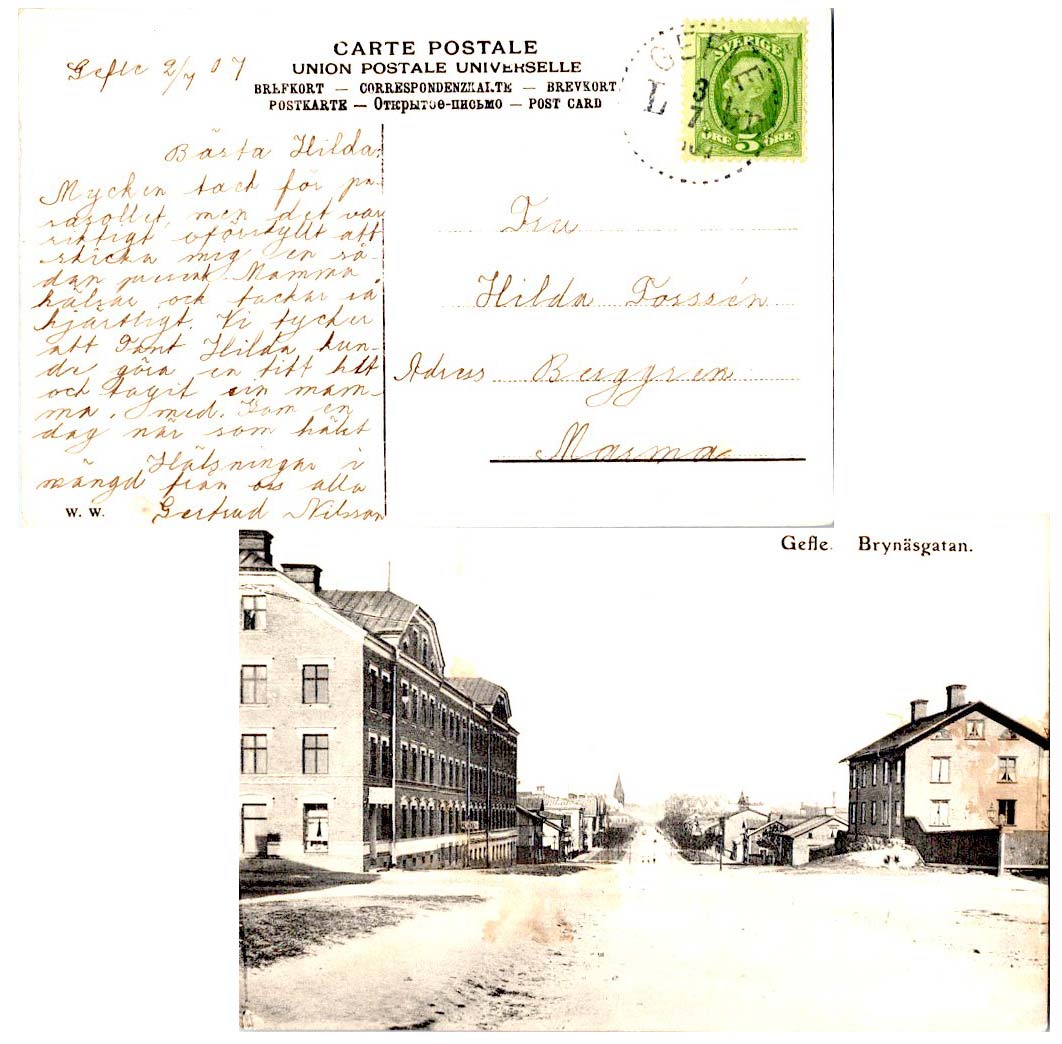 CARTE POSTALE
UNION POSTALE UNIVERSELLE
BREFKORT — CORRESPONDENZKARTE — BREVKORT
POSTKARTE — Открытое-письмо — POST CARD
Gefle 2/7 07
Bästa Hilda.
Mycken tack för pa-
rasollet, men det var
riktigt oförskyllt att
skicka mig en så-
dan present. Mamma
hälsar och tackar så
hjärtligt. Vi tycker
att Tant Hilda kun-
de göra en titt hit
och tagit sin mam-
ma med. Kom en
dag när som hälst
Hälsningar i
mängd från oss alla
Gertrud Nilsson
W. W.
GEFLE
L
3
7
SVERIGE
ÖRE 5 ÖRE
Fru
Hilda Forssén
Adress Berggren
Marma
Gefle. Brynäsgatan.